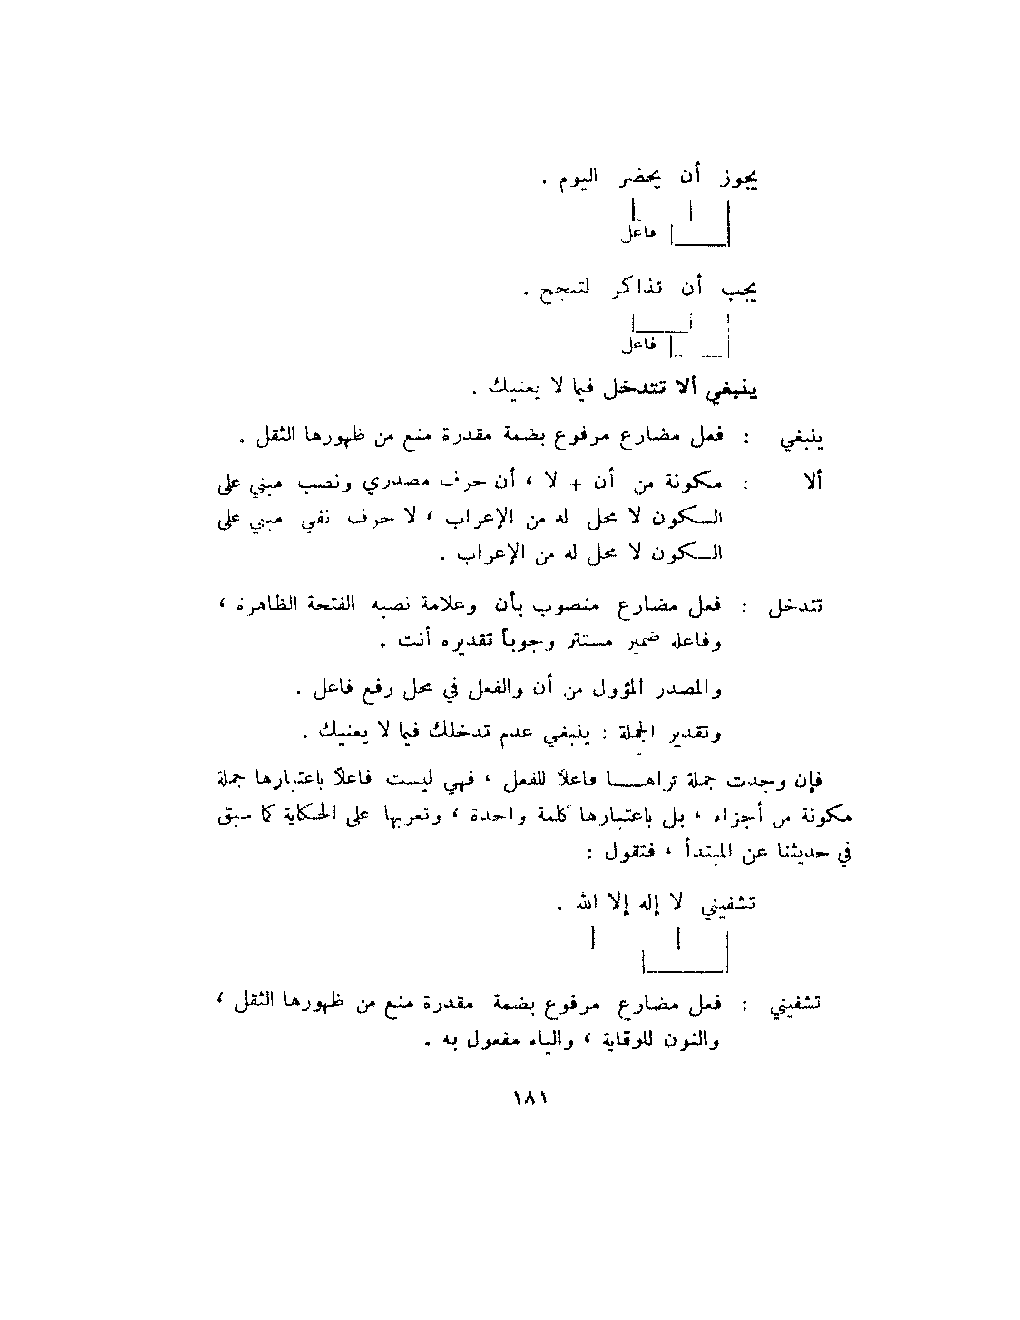 يجوز أن يحضر اليوم .
فاعل
يجب أن تذاكر لتنجح .
فاعل
ينبغي ألا تتدخل فيما لا يعنيك .
ينبغي : فعل مضارع مرفوع بضمة مقدرة منع من ظهورها الثقل .
ألا : مكونة من أن + لا ، أن حرف مصدري ونصب مبني على
الســكون لا محل له من الإعراب ، لا حرف نفي مبني على
الســكون لا محل له من الإعراب .
تتدخل : فعل مضارع منصوب بأن وعلامة نصبه الفتحة الظاهرة ،
وفاعله ضمير مستتر وجوباً تقديره أنت .
والمصدر المؤول من أن والفعل في محل رفع فاعل .
وتقدير الجملة : ينبغي عدم تدخلك فيما لا يعنيك .
فإن وجدت جملة تراهــا فاعلاً للفعل ، فهي ليست فاعلاً باعتبارها جملة
مكونة من أجزاء ، بل باعتبارها كلمة واحدة ، وتعربها على الحكاية كما سبق
في حديثنا عن المبتدأ ، فتقول :
تشفيني لا إله إلا الله .
تشفيني : فعل مضارع مرفوع بضمة مقدرة منع من ظهورها الثقل ،
والنون للوقاية ، والياء مفعول به .
١٨١